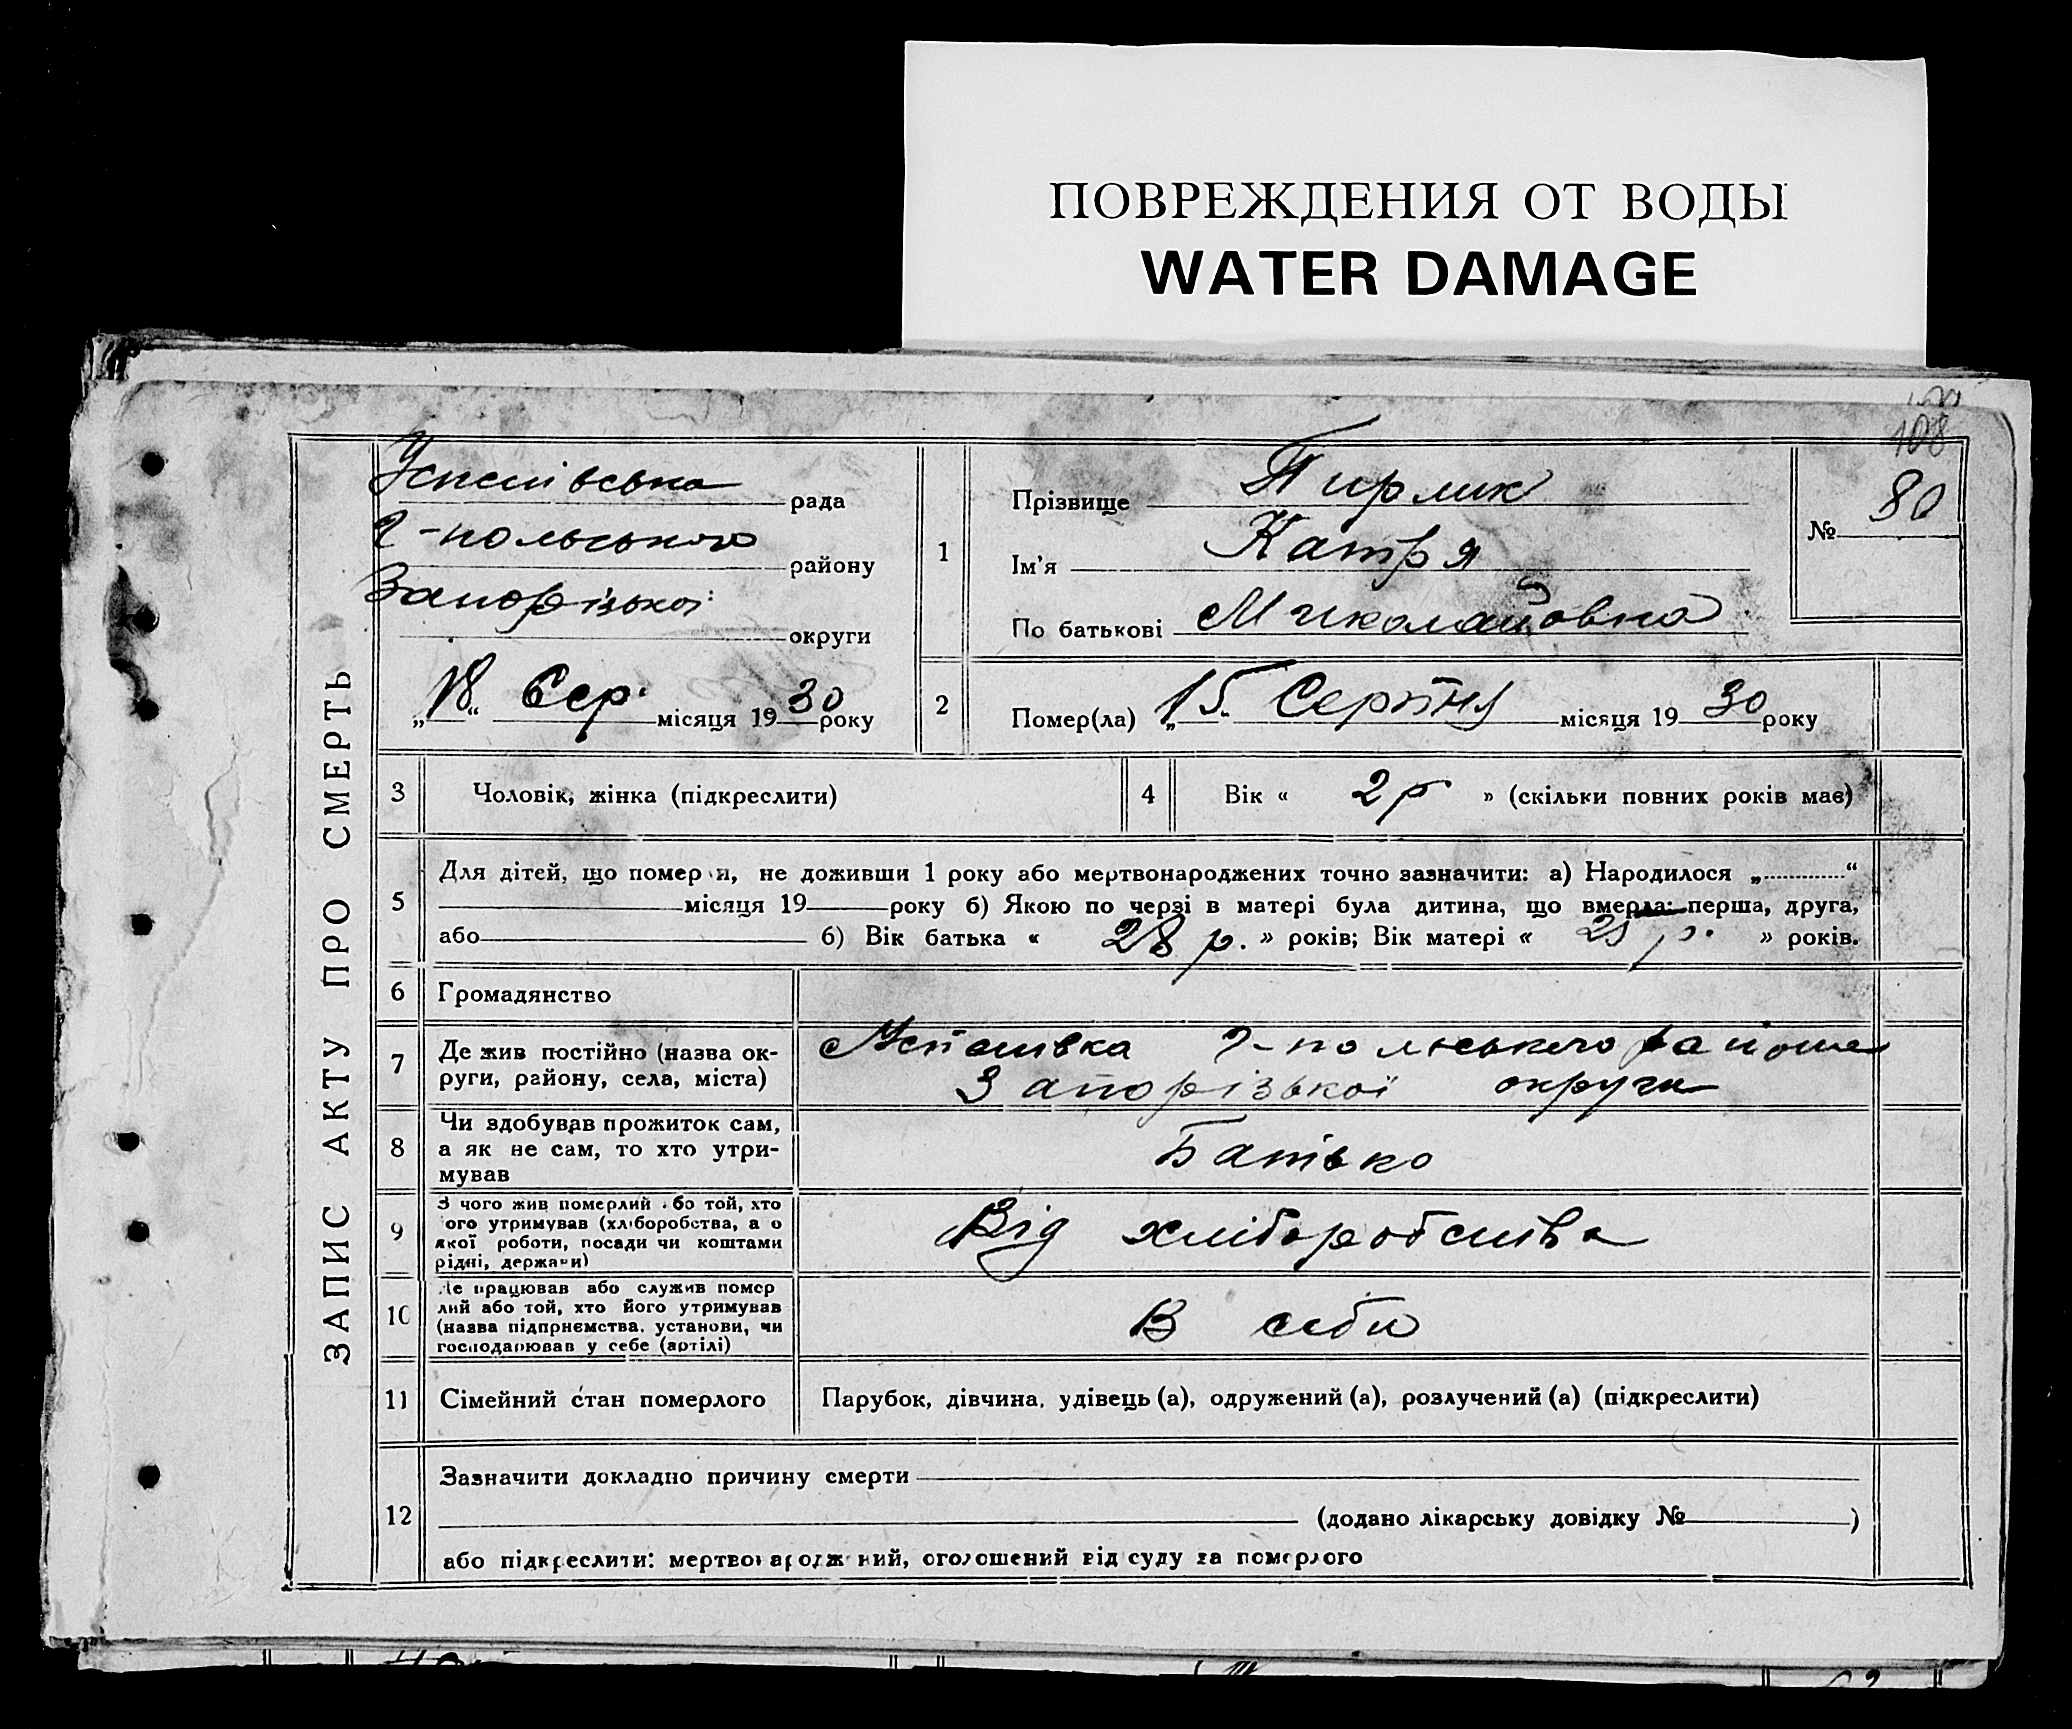 ПОВРЕЖДЕНИЯ ОТ ВОДЫ
WATER DAMAGE
108
ЗАПИС АКТУ ПРО СМЕРТЬ
Успенівська рада
Г-польського району
Запорізької округи
„18“ Сер. місяця 1930 року
1
Прізвище Пирлик
Ім'я Катря
По батькові Миколайовна
№ 80
2
Помер(ла) „15 Серпня місяця 1930 року
3 Чоловік, жінка (підкреслити)
4 Вік « 2 р » (скільки повних років має)
5 Для дітей, що помер и, не доживши 1 року або мертвонароджених точно зазначити: а) Народилося „ “
місяця 19 року б) Якою по черзі в матері була дитина, що вмерла: перша, друга,
або б) Вік батька « 28 р. » років; Вік матері « р. » років.
6 Громадянство
7 Де жив постійно (назва ок-
руги, району, села, міста)
Успенівка Г-польського района
Запорізької округи
8 Чи здобував прожиток сам,
а як не сам, то хто утри-
мував
Батько
9 З чого жив померлий бо той, хто
ого утримував (хліборобства, а о
якої роботи, посади чи коштами
рідні, держави)
Від хліборобства
10 де працював або служив помер
лий або той, хто його утримував
(назва підприємства, установи, чи
господарював у себе (артілі)
В себи
11 Сімейний стан померлого
Парубок, дівчина, удівець (а), одружений (а), розлучений (а) (підкреслити)
12 Зазначити докладно причину смерти
(додано лікарську довідку № )
або підкреслити: мертвонароджений, оголошений від суду за померлого